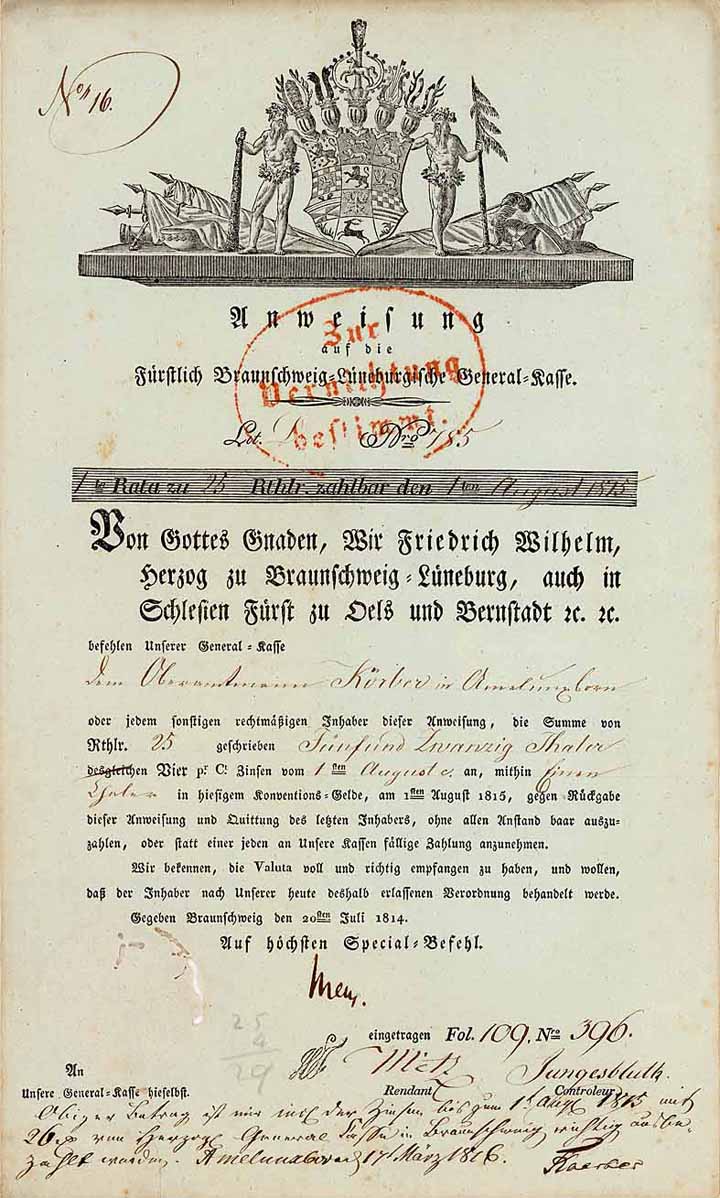 No. 16.
Anweisung
auf die
Fürstlich Braunschweig-Lüneburgische General-Kasse.
Zur
Vernichtung
bestimmt.
Lit. D Nro 785
1te Rata zu 25 Rthlr. zahlbar den 1ten August 1815
Von Gottes Gnaden, Wir Friedrich Wilhelm,
Herzog zu Braunschweig-Lüneburg, auch in
Schlesien Fürst zu Oels und Bernstadt ꝛc. ꝛc.
befehlen Unserer General-Kasse
dem Oberamtmann Körber in Amelunxborn
oder jedem sonstigen rechtmäßigen Inhaber dieser Anweisung, die Summe von
Rthlr. 25 geschrieben Fünfund Zwanzig Thaler
desgleichen Vier pr Ct Zinsen vom 1sten August c. an, mithin Einen
Thaler in hiesigem Konventions-Gelde, am 1sten August 1815, gegen Rückgabe
dieser Anweisung und Quittung des letzten Inhabers, ohne allen Anstand baar auszu-
zahlen, oder statt einer jeden an Unsere Kassen fällige Zahlung anzunehmen.
Wir bekennen, die Valuta voll und richtig empfangen zu haben, und wollen,
daß der Inhaber nach Unserer heute deshalb erlassenen Verordnung behandelt werde.
Gegeben Braunschweig den 20sten Juli 1814.
Auf höchsten Special-Befehl.
25
4
29
eingetragen Fol. 109. Nro 396.
An
Unsere General-Kasse hieselbst.
Metz
Rendant
Jungesbluth.
Controleur
Obiger Betrag ist mir incl der Zinsen bis zum 1t Aug 1815 mit
26 von Herzogl General Casse in Braunschweig richtig ausbe-
zahlt worden. Amelunxborn d 17t März 1816. Koerber